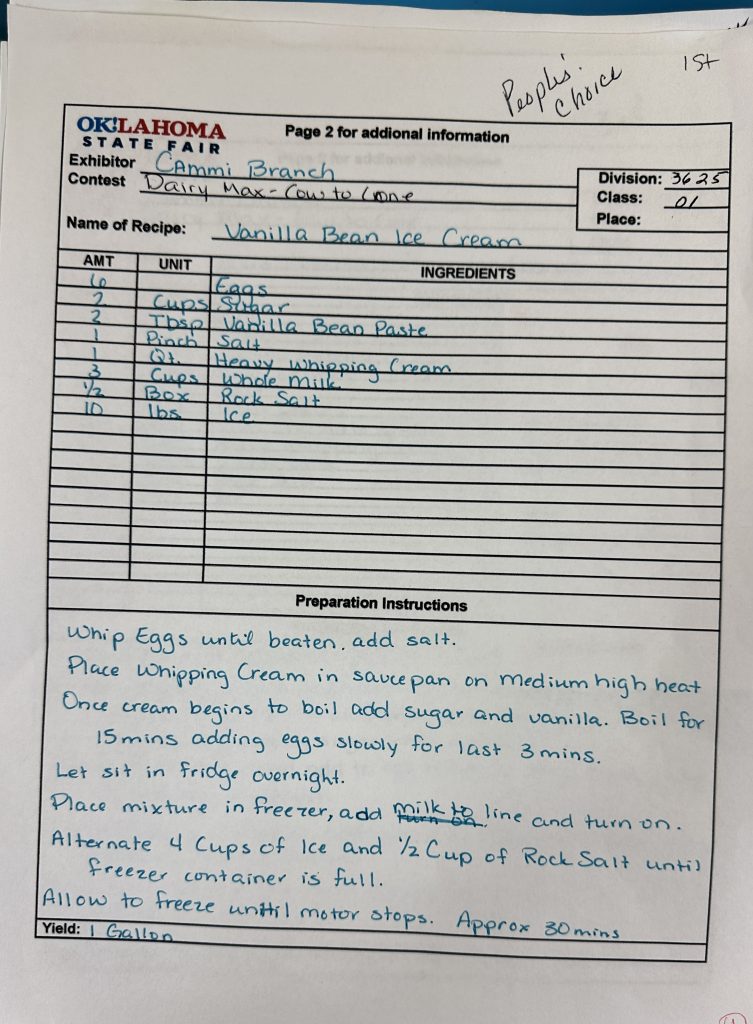 People's Choice
1st
OK!LAHOMA
STATE FAIR
Page 2 for addional information
Exhibitor CAmmi Branch
Contest Dairy Max - Cow to Cone
Division: 3625
Class: 01
Place:
Name of Recipe: Vanilla Bean Ice Cream
AMT UNIT INGREDIENTS
6 Eggs
2 Cups Sugar
2 Tbsp Vanilla Bean Paste
1 Pinch Salt
1 Qt. Heavy Whipping Cream
3 Cups Whole Milk
1/2 Box Rock Salt
10 lbs Ice
Preparation Instructions
Whip Eggs until beaten. add salt.
Place Whipping Cream in sauce pan on medium high heat
Once cream begins to boil add sugar and vanilla. Boil for
15 mins adding eggs slowly for last 3 mins.
Let sit in fridge overnight.
Place mixture in freezer, add milk to line and turn on.
turn on.
Alternate 4 Cups of Ice and 1/2 Cup of Rock Salt until
freezer container is full.
Allow to freeze unttil motor stops. Approx 30 mins
Yield: 1 Gallon